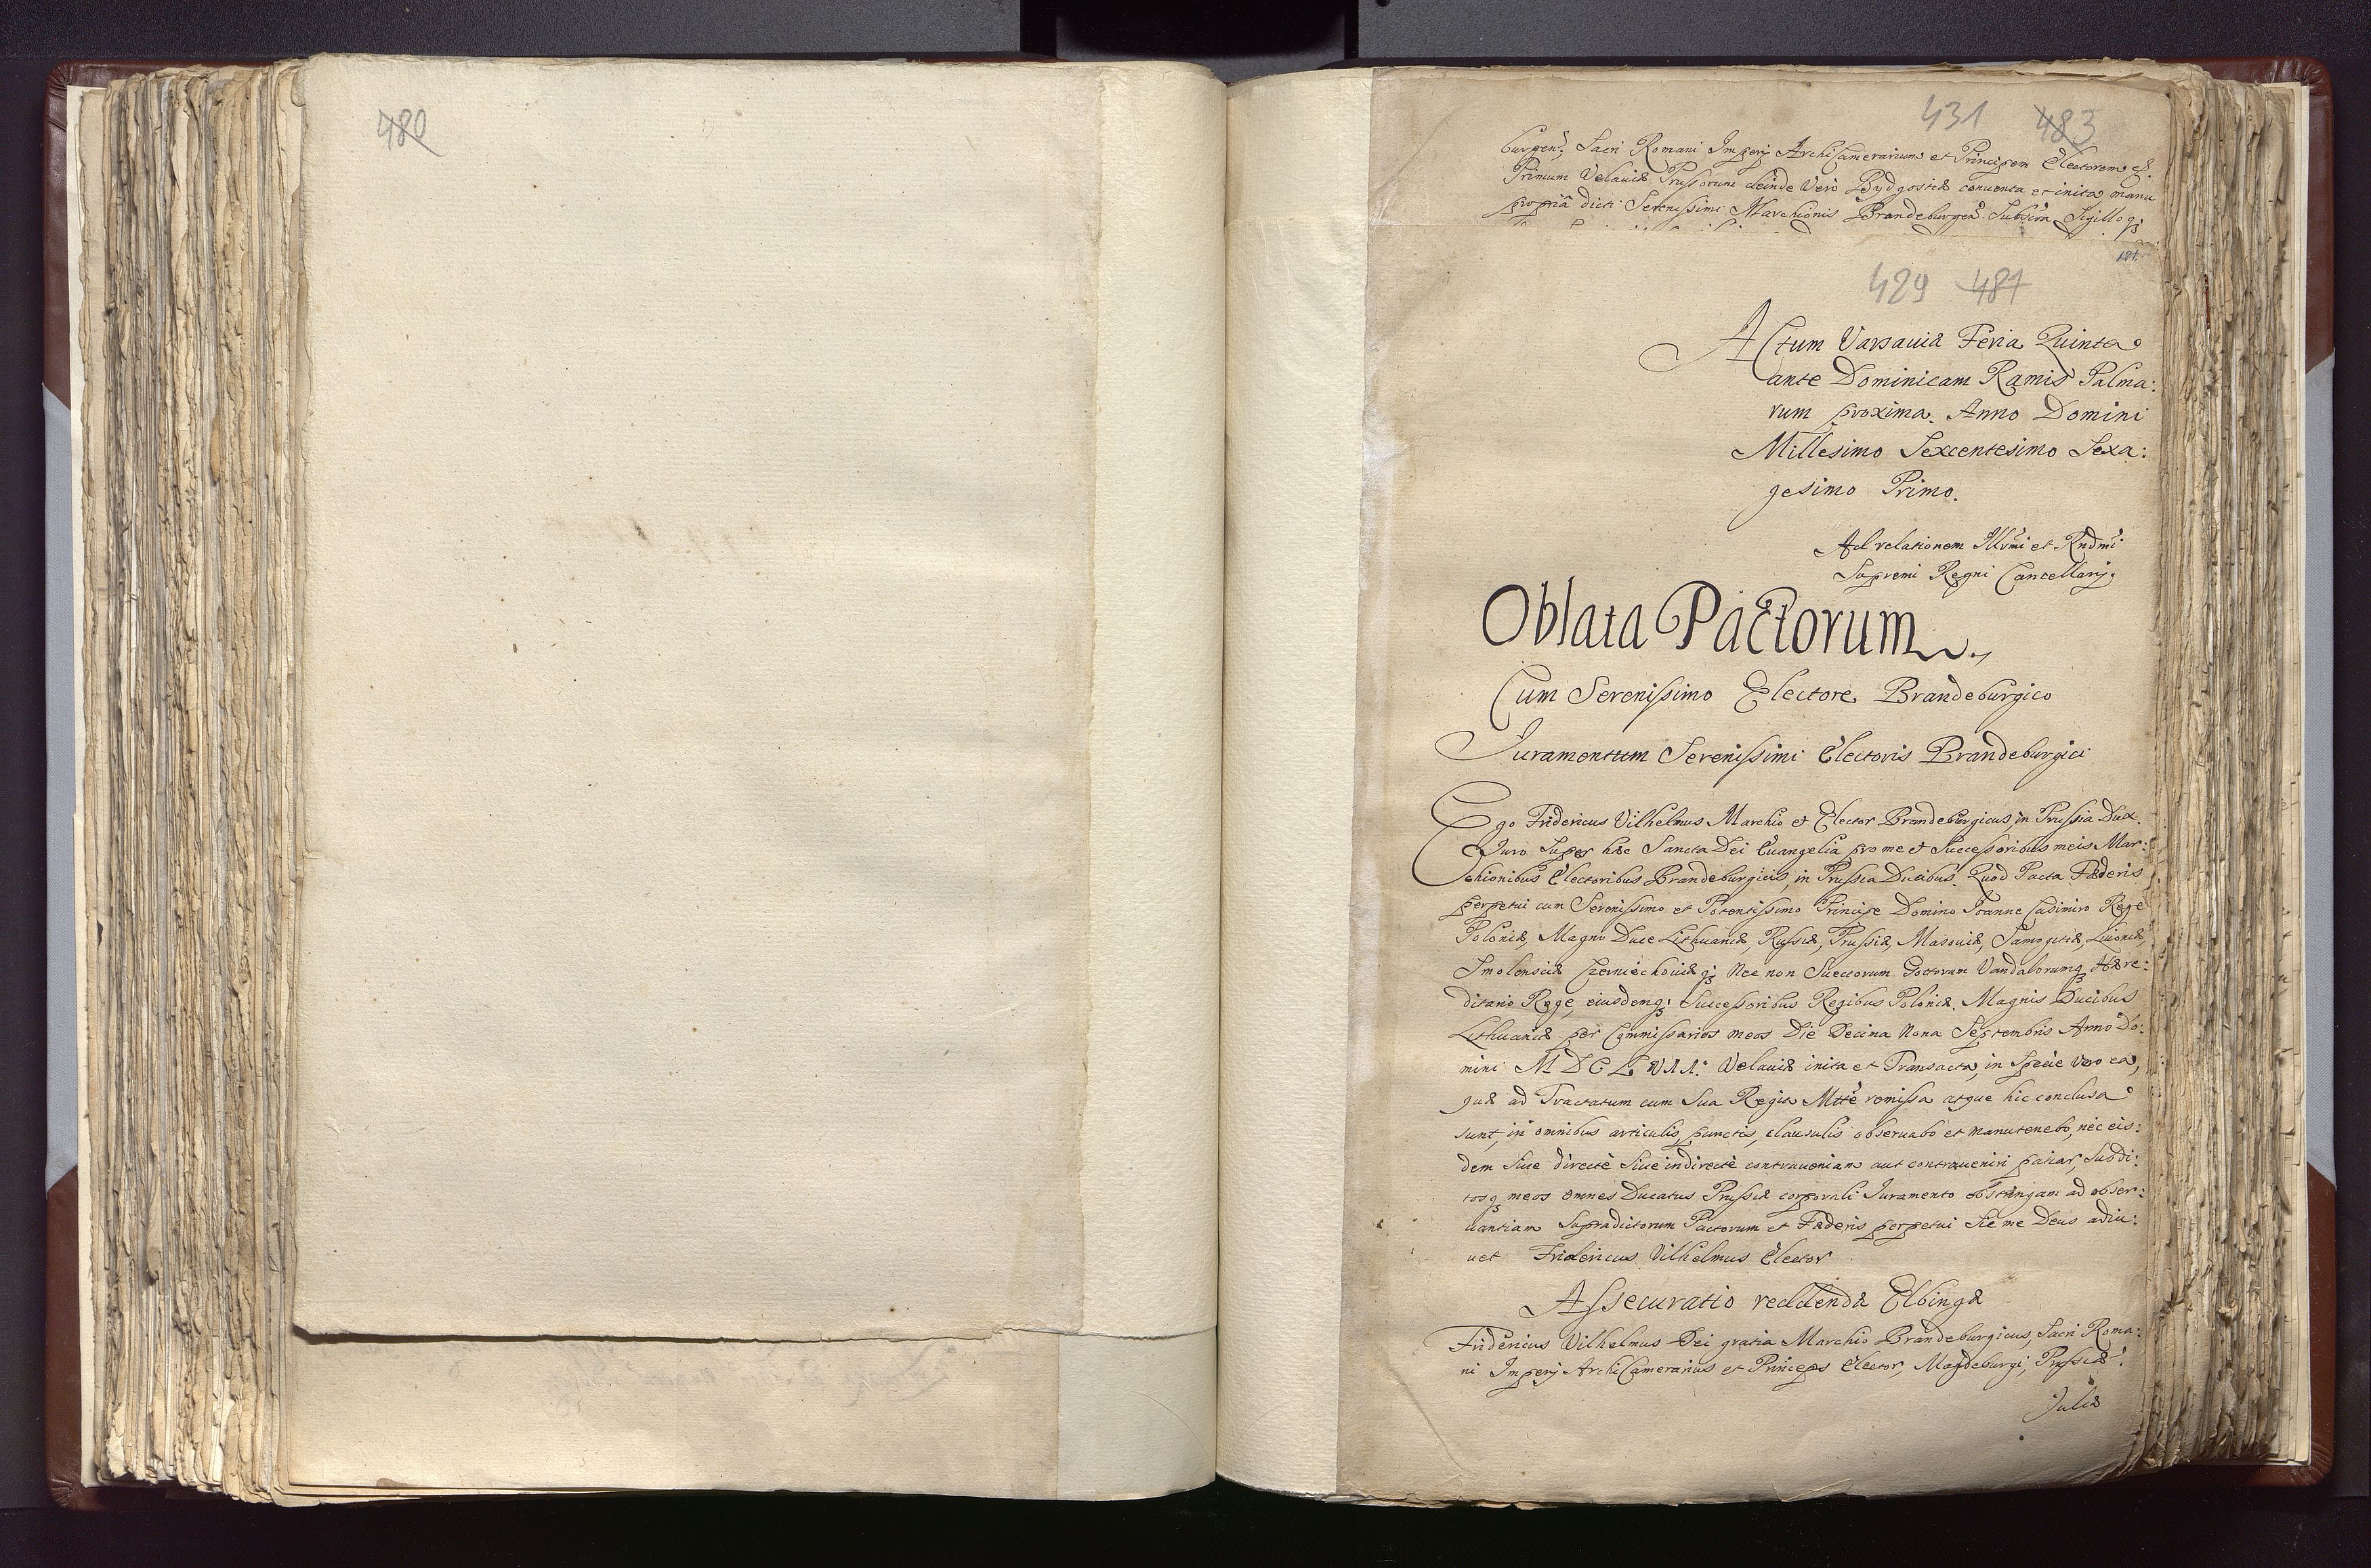 480
431 483
burgen: Sacri Romani Imperij Archicamerarium et Principem Electorem
Primum Velaviæ Prussorum deinde Vero Bydgostiæ conventa et inita manu
propriâ dicti Serenissimi Marchionis Brandeburgen: Sigilloq;
181.
429 481
Actum Varsaviæ Feria Quinta
ante Dominicam Ramis Palma:
rum proxima. Anno Domini
Millesimo Sexcentesimo Sexa:
gesimo Primo.
Ad relationem Illrmi et Rndmi
Supremi Regni Cancellarij.
Oblata Pactorum
Cum Serenissimo Electore Brandeburgico
Juramentum Serenissimi Electoris Brandeburgici
Ego Fridericus Vilhelmus Marchio et Elector Brandeburgicus, in Prussia Dux.
Juro Super hæc Sancta Dei Euangelia pro me et Successoribus meis Mar:
chionibus Electoribus Brandeburgicis, in Prussia Ducibus. Quod Pacta Fæderis
perpetui cum Serenissimo et Potentissimo Principe Domino Joanne Casimiro Rege
Poloniæ, Magno Duce Lithuaniæ Russiæ, Prussiæ, Masouiæ, Samogitiæ, Liuoniæ,
Smolensciæ Czerniechouiæq; Nec non Suecorum Gottorum Vandalorumq; Hære:
ditario Rege, eiusdemq; Successoribus Regibus Poloniæ. Magnis Ducibus
Lithuaniæ per Commissarios meos Die Decina Nona Septembris Anno Do:
mini M D C L VII. Velauiæ inita et Transacta, in Specie vero ea,
quæ ad Tractatum cum Sua Regia Mtte remissa atque hic conclusa
sunt, in omnibus articulis, punctis, clausulis observabo et manutenebo, nec eis:
dem Siue directè Siue indirectè contraueniam aut contraueniri patiar, Subdi:
tosq; meos omnes Ducatus Prussiæ corporali Juramento obstringam ad obser:
uantiam Supradictorum Pactorum et Fæderis perpetui Sic me Deus adiu:
uet Fridericus Vilhelmus Elector
Assecuratio reddendæ Elbingæ
Fridericus Vilhelmus Dei gratia Marchio Brandeburgicus, Sacri Roma:
ni Imperij Archicamerarius et Princeps Elector, Magdeburgi, Prussiæ
Juliæ